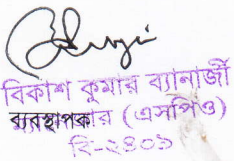 বিকাশ কুমার ব্যানার্জী
ব্যবস্থাপক (এসপিও)
বি-২৪০৯